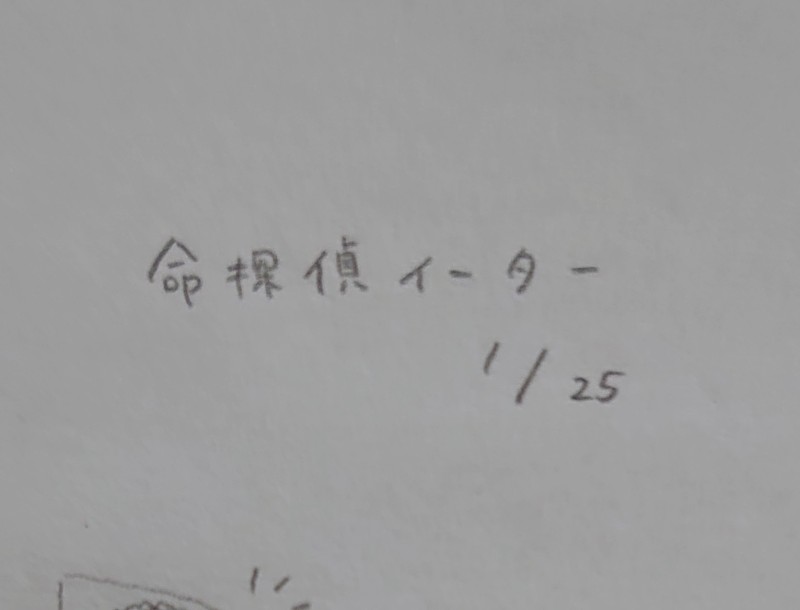 命探偵イーター
1/25